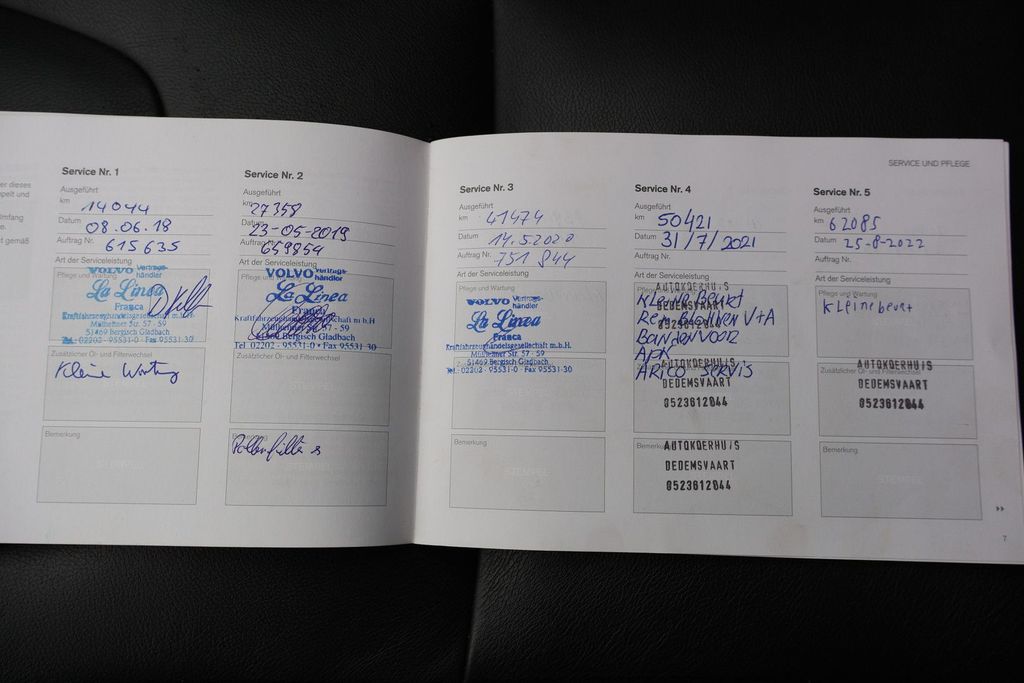 er dieses
mpelt und
mfang
e.
st gemäß
Service Nr. 1
Ausgeführt
km 14044
Datum 08.06.18
Auftrag Nr. 615635
Art der Serviceleistung
Pflege und Wartung
VOLVO Vertrags-
händler
La Linea
Franca
Kraftfahrzeughandelsgesellschaft m.b.H.
Mülheimer Str. 57 - 59
51469 Bergisch Gladbach
Tel. 02202 - 95531-0 · Fax 95531-30
Zusätzlicher Öl- und Filterwechsel
Kleine Wartung
Bemerkung
STEMPEL
Service Nr. 2
Ausgeführt
km 27358
Datum 23-05-2019
Auftrag Nr. 659859
Art der Serviceleistung
Pflege und
VOLVO Vertrags-
händler
La Linea
Franca
Kraftfahrzeughandelsgesellschaft m.b.H
Mülheimer Str. 57 - 59
51469 Bergisch Gladbach
Tel. 02202 - 95531-0 · Fax 95531-30
Zusätzlicher Öl- und Filterwechsel
STEMPEL
Pollenfilter
Service Nr. 3
Ausgeführt
km 41474
Datum 14.5.2020
Auftrag Nr. 751 844
Art der Serviceleistung
Pflege und Wartung
VOLVO Vertrags-
händler
La Linea
Franca
Kraftfahrzeughandelsgesellschaft m.b.H.
Mülheimer Str. 57 - 59
51469 Bergisch Gladbach
Tel.: 02202 - 95531-0 · Fax 95531-30
STEMPEL
Bemerkung
STEMPEL
SERVICE UND PFLEGE
Service Nr. 4
Ausgeführt
km 50421
Datum 31/7/2021
Auftrag Nr.
Art der Serviceleistung
AUTOKOERHUIS
DEDEMSVAART
Kleine Beurt
Remblokken V+A
Banden voor
APK
Airco servis
AUTOKOERHUIS
DEDEMSVAART
0523612044
Bemerkung
AUTOKOERHUIS
DEDEMSVAART
0523612044
Service Nr. 5
Ausgeführt
km 62085
Datum 25-8-2022
Auftrag Nr.
Art der Serviceleistung
Pflege und Wartung
Kleine beurt
Zusätzlicher Öl- und Filterwechsel
AUTOKOERHUIS
DEDEMSVAART
0523612044
Bemerkung
STEMPEL
7